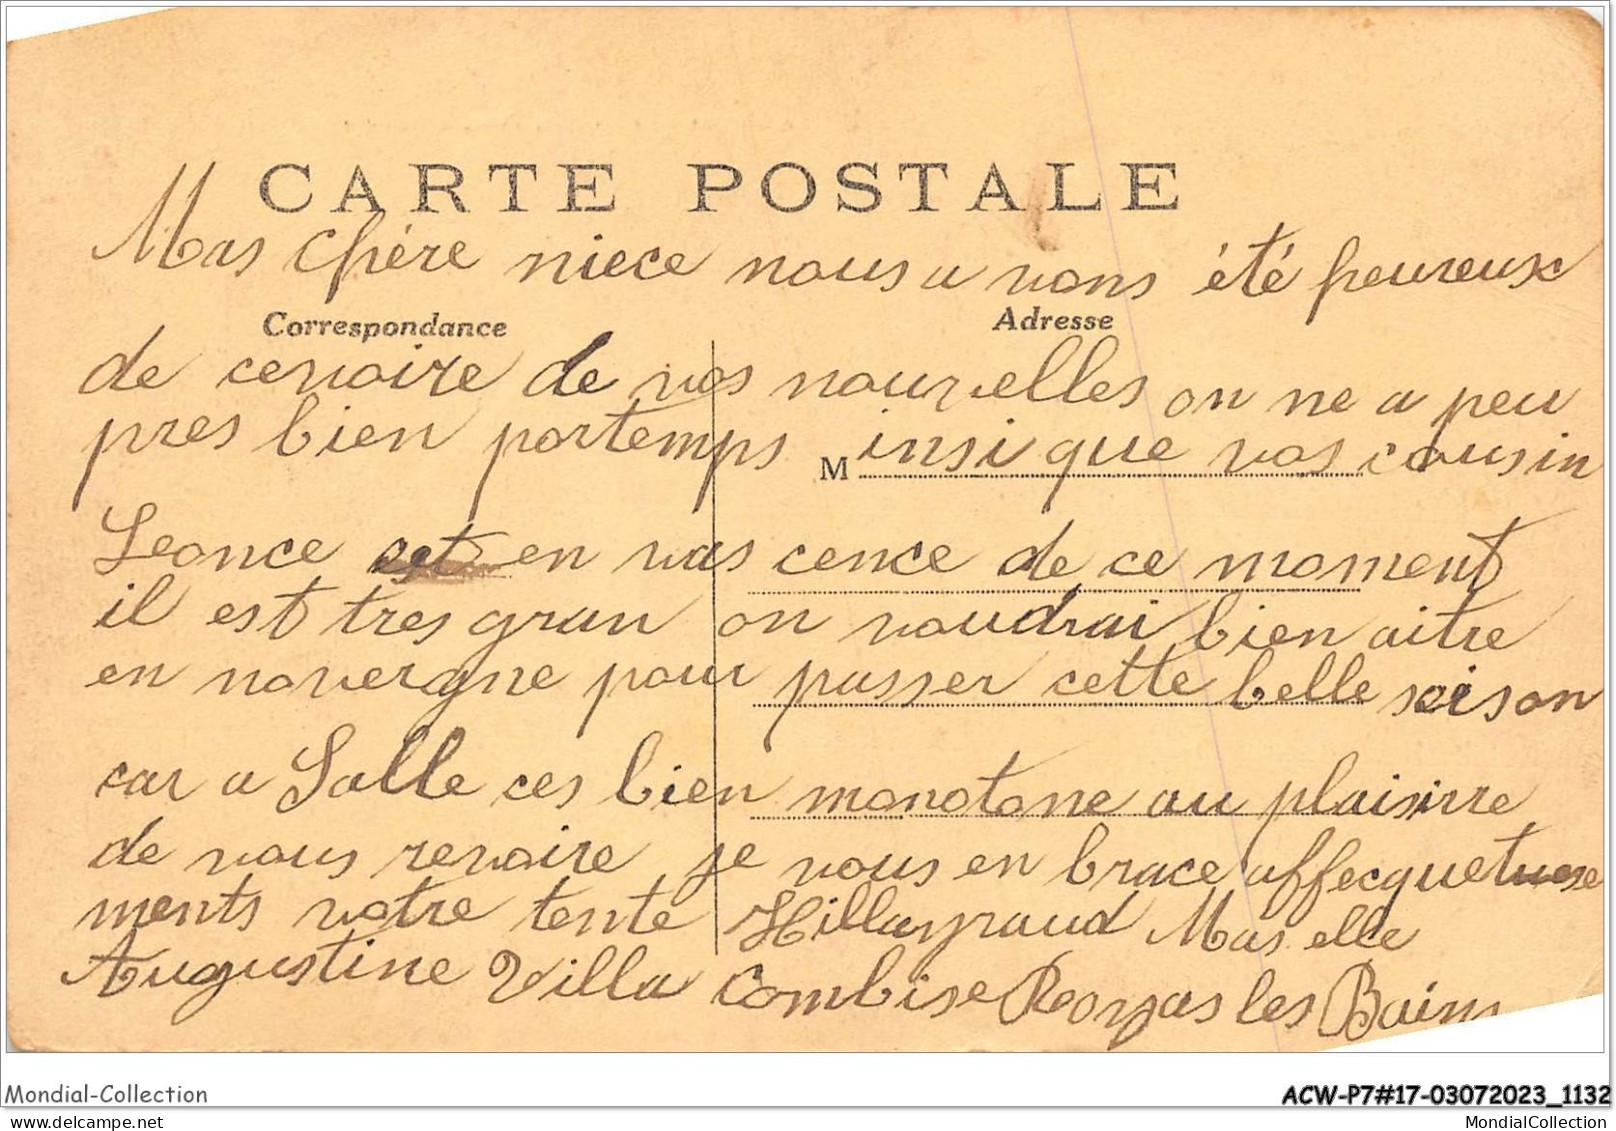 CARTE POSTALE
Mas Chère niece nous a vons été heureux
Correspondance
Adresse
de cevoire de vos nourvelles on ne a peu
pres bien portemps insi que vos cousin
M
Leonce est en vas cence de ce moment
il est tres gran on voudrai bien aitre
en novergne pour passer cette belle saison
car a Salle ces bien monotone au plaisirre
de vous revoire je vous en brace affecquetuese
ments votre tente Hillayraud Mas elle
Augustine Villa Combise Royas les Bains
Mondial-Collection
ACW-P7#17-03072023_1132
MondialCollection